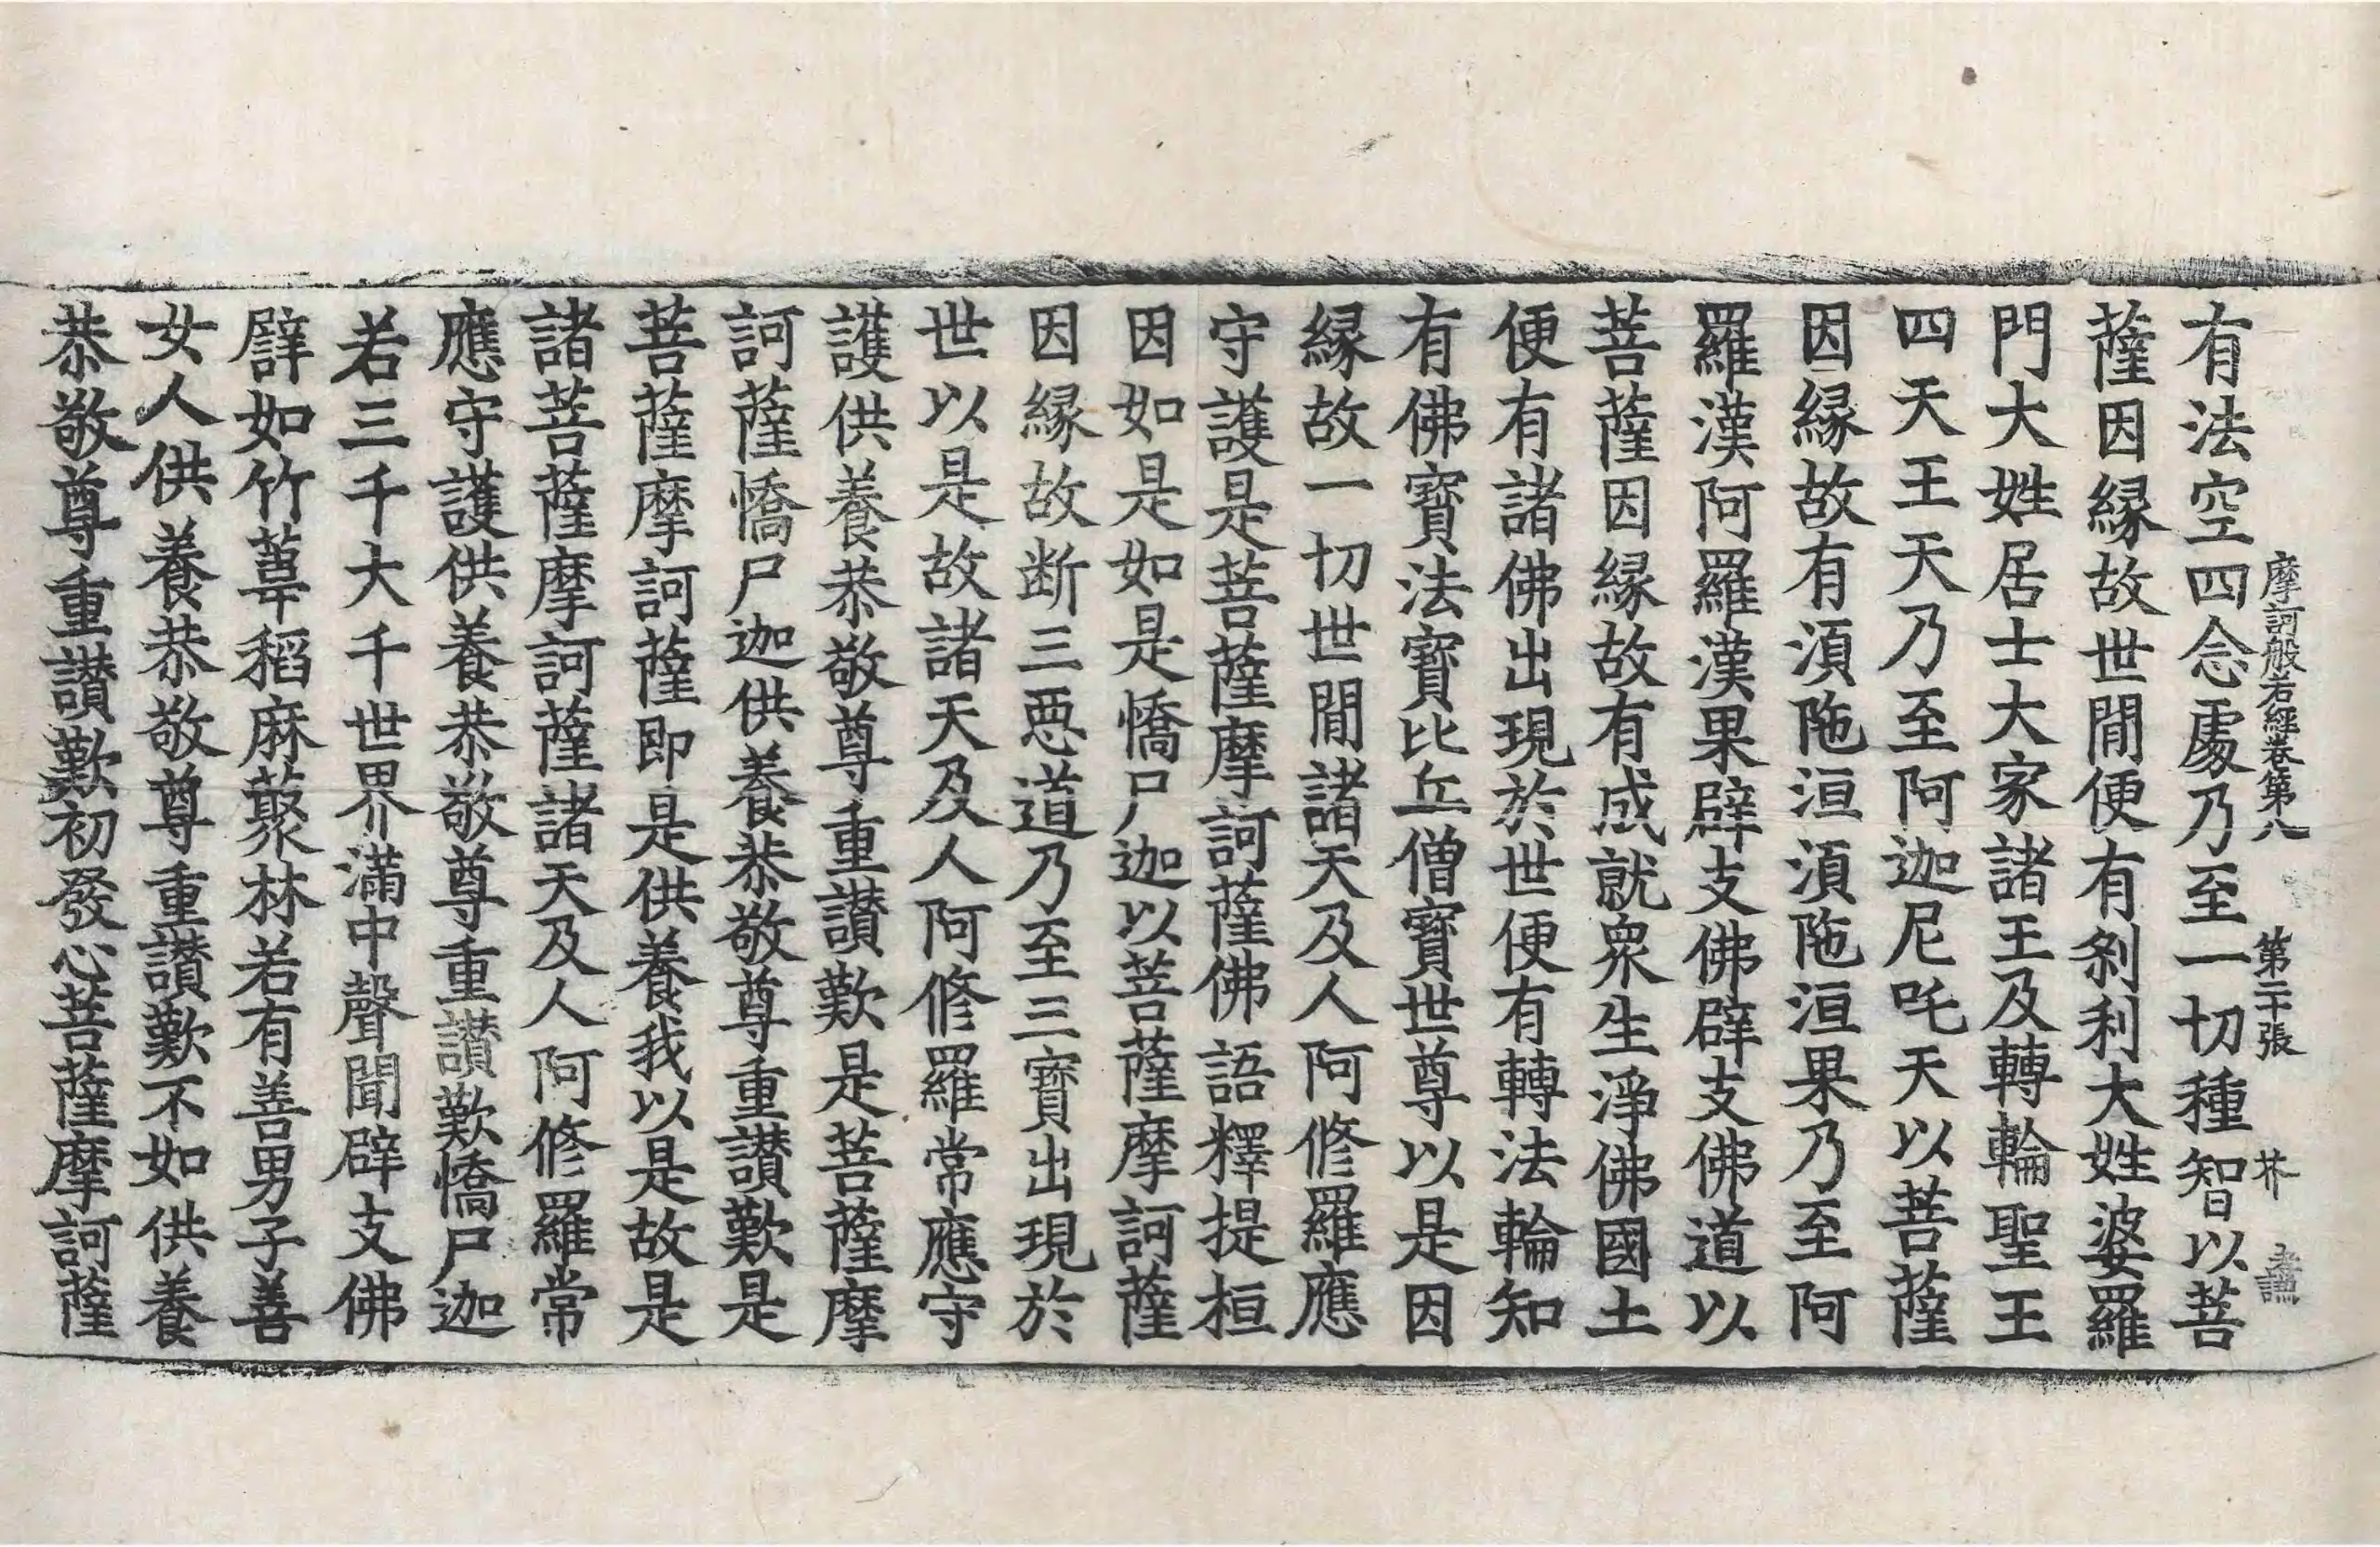 摩訶般若經卷第八 第二十張 芥 孝謙
有法空四念處乃至一切種智以菩
薩因縁故世閒便有刹利大姓婆羅
門大姓居士大家諸王及轉輪聖王
四天王天乃至阿迦尼吒天以菩薩
因縁故有須陁洹須陁洹果乃至阿
羅漢阿羅漢果辟支佛辟支佛道以
菩薩因縁故有成就衆生淨佛國土
便有諸佛出現於世便有轉法輪知
有佛寶法寶比丘僧寶世尊以是因
縁故一切世閒諸天及人阿修羅應
守護是菩薩摩訶薩佛語釋提桓
因如是如是憍尸迦以菩薩摩訶薩
因縁故断三惡道乃至三寶出現於
世以是故諸天及人阿修羅常應守
護供養恭敬尊重讃歎是菩薩摩
訶薩憍尸迦供養恭敬尊重讃歎是
菩薩摩訶薩即是供養我以是故是
諸菩薩摩訶薩諸天及人阿修羅常
應守護供養恭敬尊重讃歎憍尸迦
若三千大千世界滿中聲聞辟支佛
譬如竹葦稻麻藂林若有善男子善
女人供養恭敬尊重讃歎不如供養
恭敬尊重讃歎初發心菩薩摩訶薩